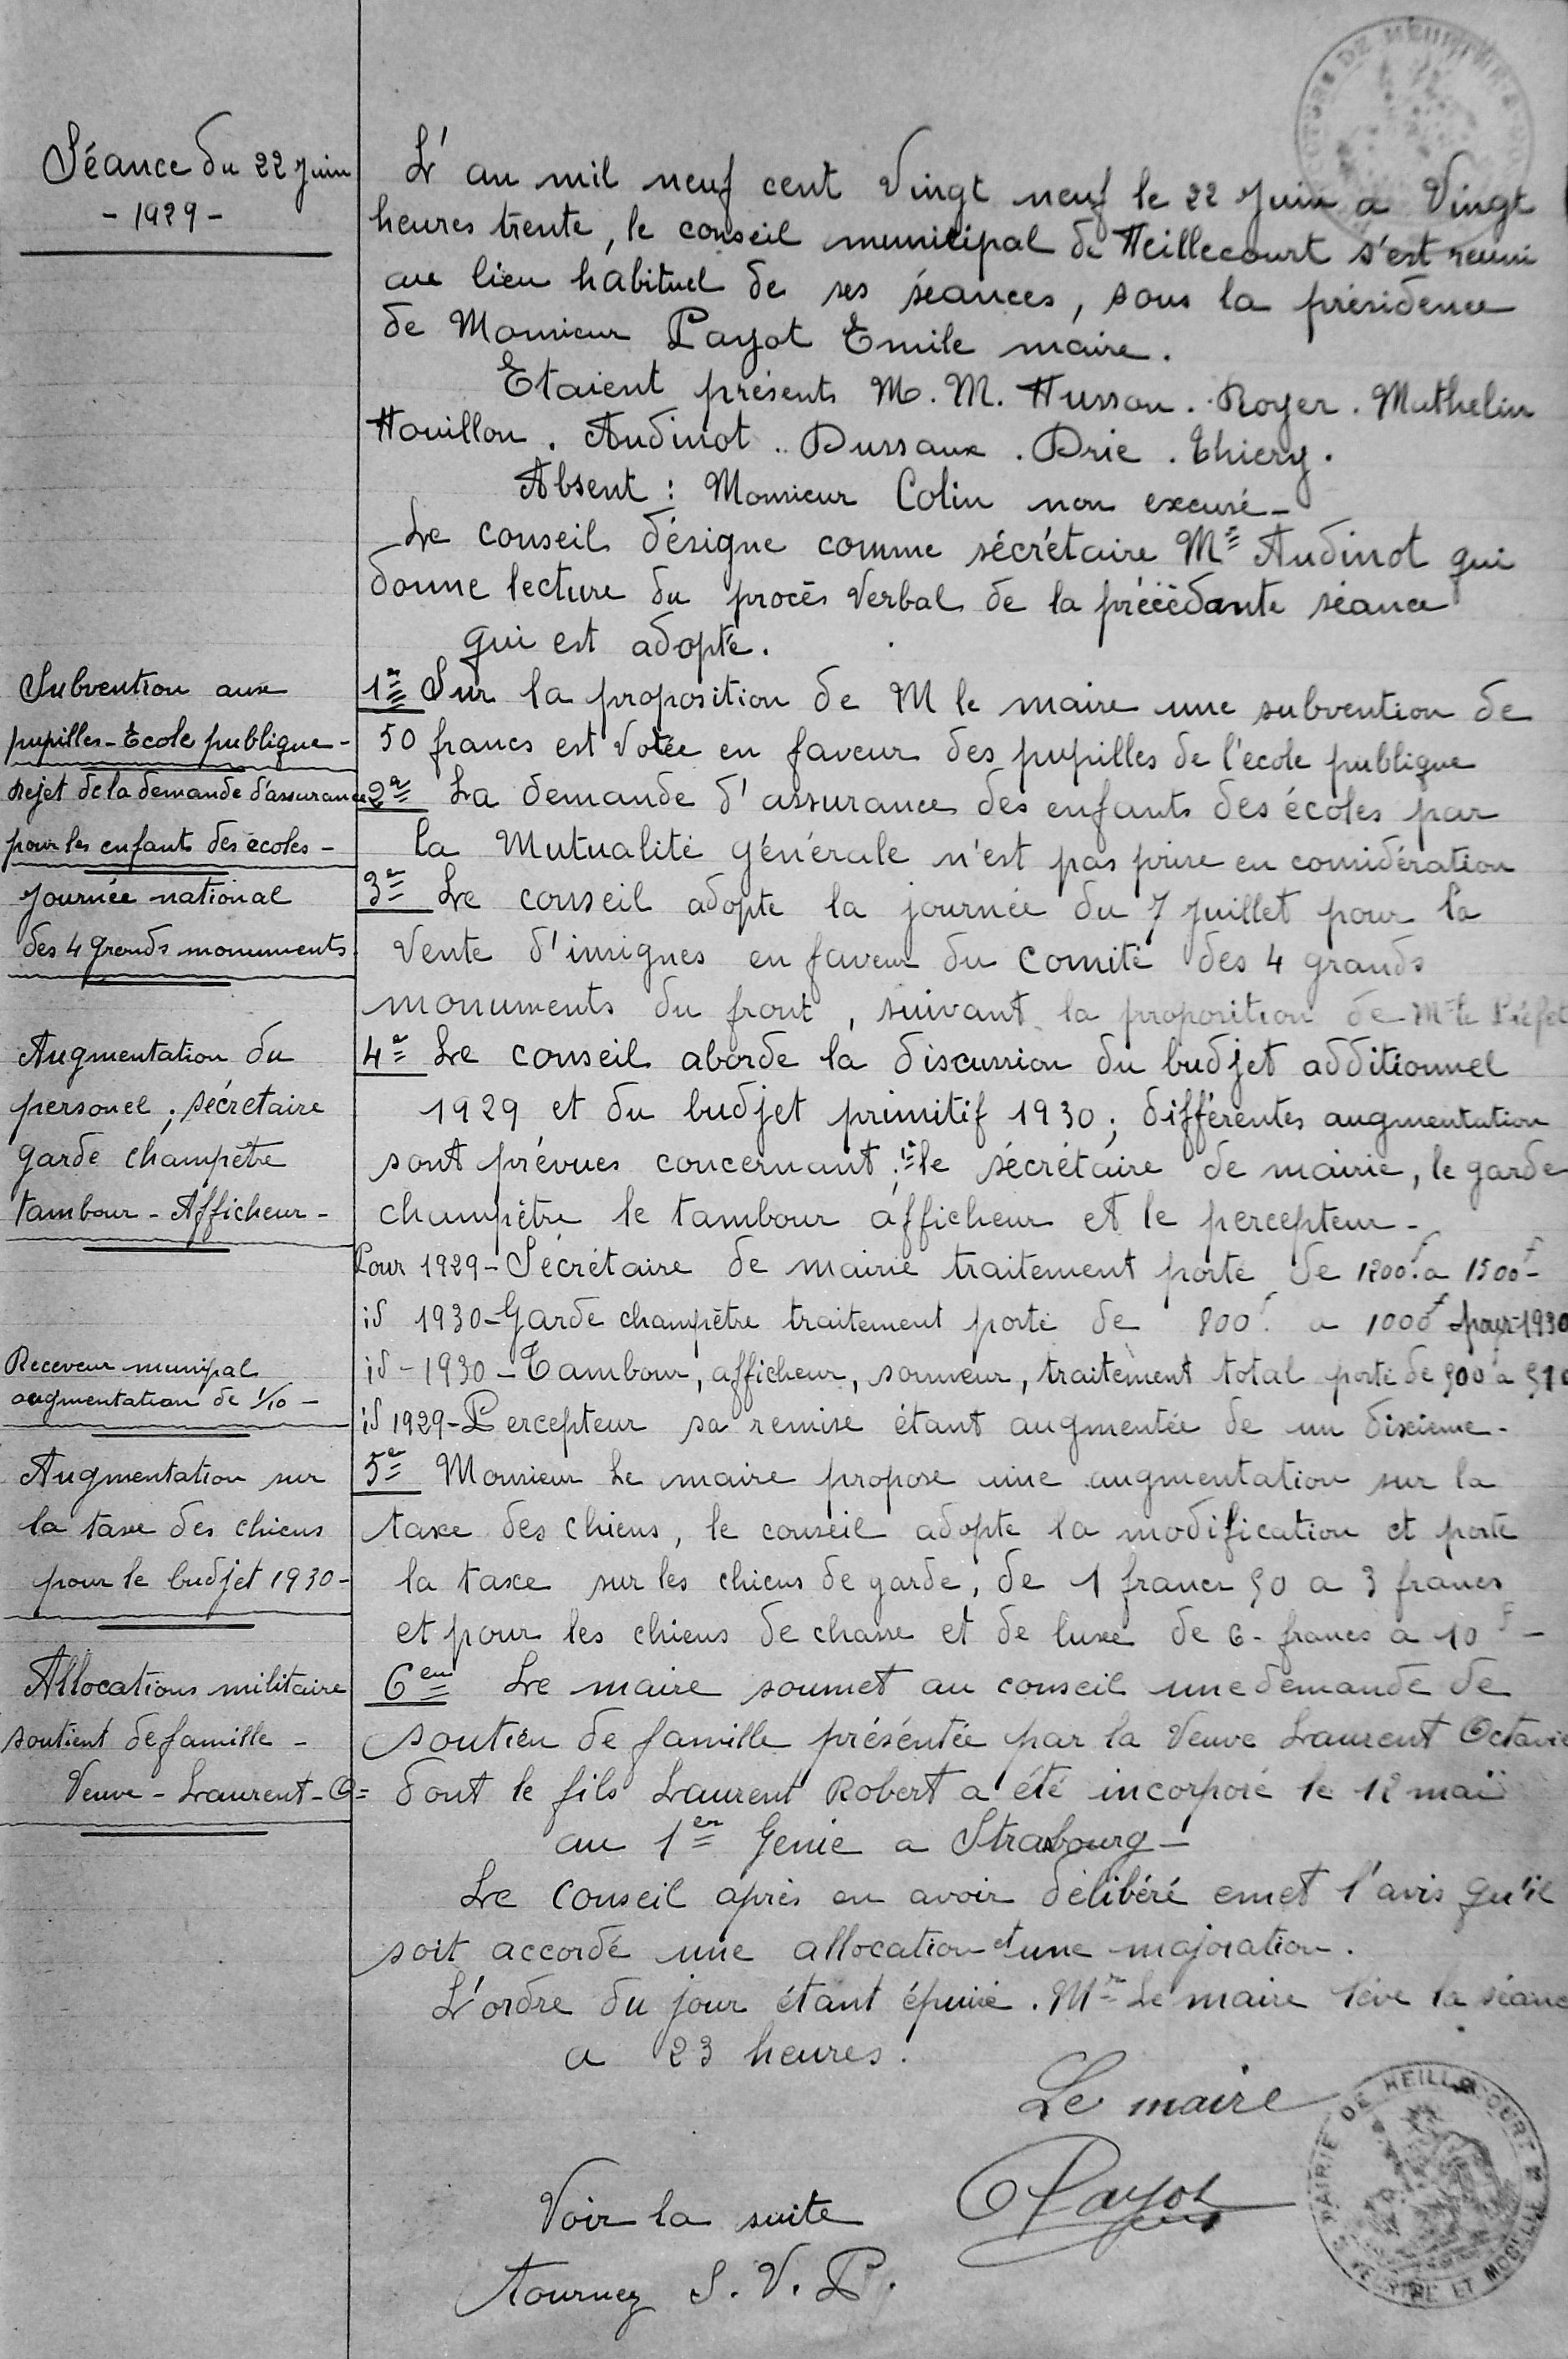 Séance du 22 Juin
- 1929 -
L'an mil neuf cent Vingt neuf le 22 Juin a Vingt
heures trente, le conseil municipal de Heillecourt s'est reuni
au lieu habituel de ses séances, sous la présidence
de Monsieur Payot Emile maire.
Etaient présents M. M. Husson. Royer. Mathelin
Houillon. Audinot.. Dussaux. Drie. Thiery.
Absent : Monsieur Colin non excusé-
Le conseil désigne comme sécrétaire Mr Audinot qui
donne lecture du procès Verbal de la précédante séance
qui est adopté.
Subvention aux
pupilles - Ecole publique -
1er Sur la proposition de M le maire une subvention de
50 francs est Votée en faveur des pupilles de l'école publique
Rejet de la demande d'assurance
pour les enfants des écoles -
2e La demande d'assurance des enfants des écoles par
la Mutualité générale n'est pas prise en considération
Journée national
des 4 grands monuments
3e Le conseil adopte la journée du 7 Juillet pour la
Vente d'insignes en faveur du Comité des 4 grands
monuments du front, suivant la proposition de Mr le Préfet
Augmentation du
personel ; sécrétaire
garde champêtre
tambour - Afficheur -
4e Le conseil aborde la discussion du budjet additionnel
1929 et du budjet primitif 1930 ; différentes augmentation
sont prévues concernant : le sécrétaire de mairie, le garde
champêtre le tambour afficheur et le percepteur -
Pour 1929 - Sécrétaire de mairie traitement porté de 1200f a 1500f -
id 1930 - Garde champêtre traitement porté de 800f a 1000f pour 1930
Receveur munipal
augmentation de 1/10 -
id - 1930 - Tambour, afficheur, sonneur, traitement total porté de 500 a
id 1929 - Percepteur sa remise étant augmentée de un dixieme -
Augmentation sur
la taxe des chiens
pour le budjet 1930 -
5e Monsieur Le maire propose une augmentation sur la
taxe des chiens, le conseil adopte la modification et porte
la taxe sur les chiens de garde, de 1 francs 50 a 3 francs
et pour les chiens de chasse et de luxe de 6 - francs a 10 f -
Allocations militaire
soutient de famille -
Veuve - Laurent - O=
6em Le maire soumet au conseil une demande de
soutien de famille présentée par la Veuve Laurent Octavie
dont le fils Laurent Robert a été incorporé le 12 mai
au 1er Génie a Strasbourg -
Le Conseil après en avoir délibéré emet l'avis qu'il
soit accordé une allocation et une majoration.
L'ordre du jour étant épuisé. Mr Le maire lève la séance
a 23 heures.
Le maire
Payot
Voir la suite
Tournez S. V. P.
MAIRIE DE HEILLECOURT
MEURTHE ET MOSELLE